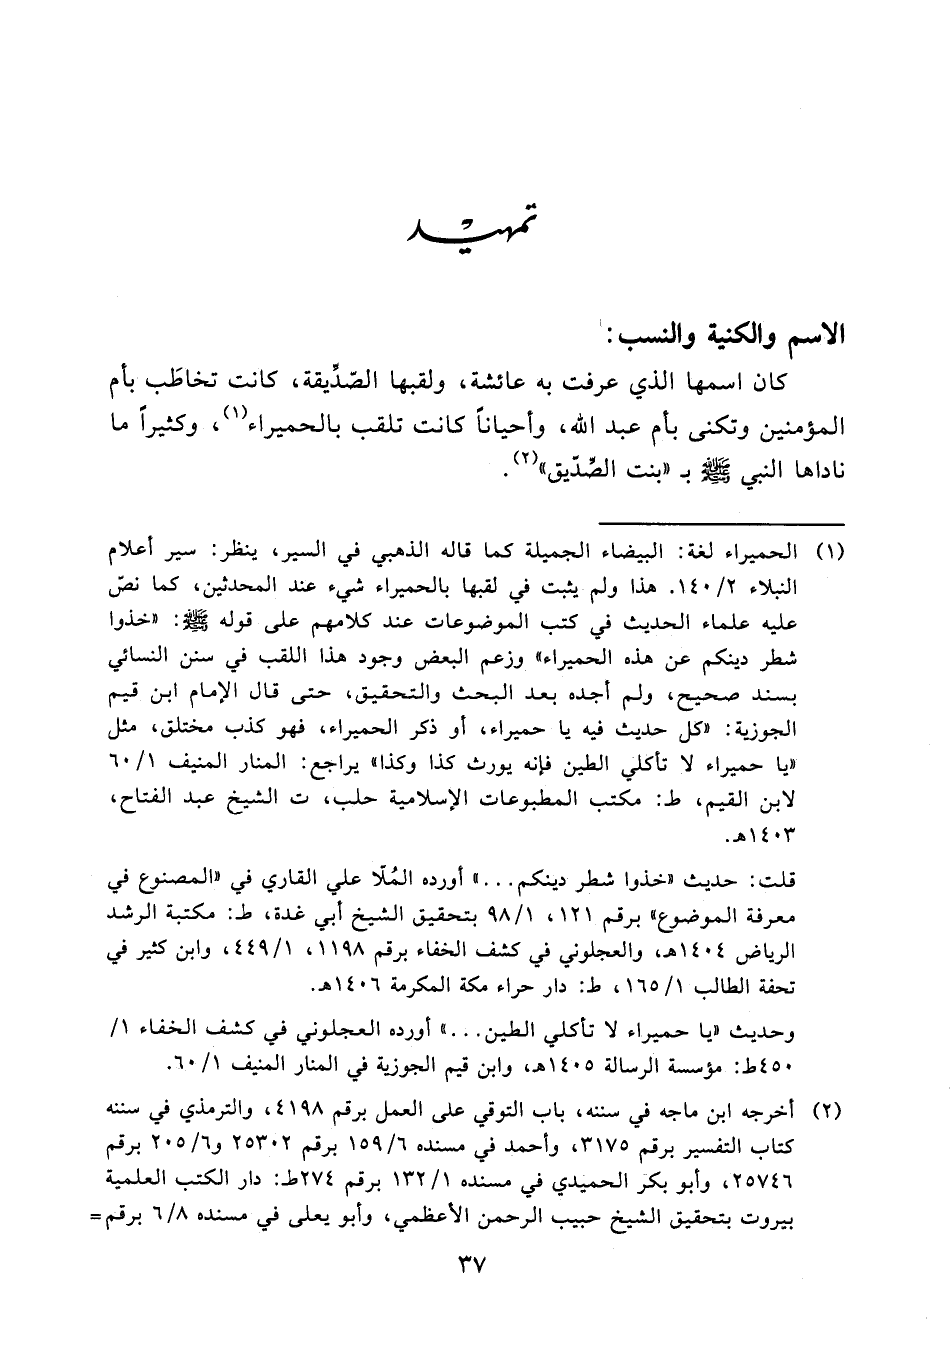 تمهيد
الاسم والكنية والنسب:
كان اسمها الذي عرفت به عائشة، ولقبها الصّدِّيقة، كانت تخاطَب بأم
المؤمنين وتكنى بأم عبد الله، وأحياناً كانت تلقب بالحميراء(١)، وكثيراً ما
ناداها النبي ﷺ بـ «بنت الصِّدّيق»(٢).
(١) الحميراء لغة: البيضاء الجميلة كما قاله الذهبي في السير، ينظر: سير أعلام
النبلاء ٢/ ١٤٠. هذا ولم يثبت في لقبها بالحميراء شيء عند المحدثين، كما نصّ
عليه علماء الحديث في كتب الموضوعات عند كلامهم على قوله ﷺ: «خذوا
شطر دينكم عن هذه الحميراء» وزعم البعض وجود هذا اللقب في سنن النسائي
بسند صحيح، ولم أجده بعد البحث والتحقيق، حتى قال الإمام ابن قيم
الجوزية: «كل حديث فيه يا حميراء، أو ذكر الحميراء، فهو كذب مختلق، مثل
«يا حميراء لا تأكلي الطين فإنه يورث كذا وكذا» يراجع: المنار المنيف ١/ ٦٠
لابن القيم، ط: مكتب المطبوعات الإسلامية حلب، ت الشيخ عبد الفتاح،
١٤٠٣هـ.
قلت: حديث «خذوا شطر دينكم...» أورده المُلّا علي القاري في «المصنوع في
معرفة الموضوع» برقم ١٢١، ١/ ٩٨ بتحقيق الشيخ أبي غدة، ط: مكتبة الرشد
الرياض ١٤٠٤هـ، والعجلوني في كشف الخفاء برقم ١١٩٨، ١/ ٤٤٩، وابن كثير في
تحفة الطالب ١/ ١٦٥، ط: دار حراء مكة المكرمة ١٤٠٦هـ.
وحديث «يا حميراء لا تأكلي الطين...» أورده العجلوني في كشف الخفاء ١/
٤٥٠ط: مؤسسة الرسالة ١٤٠٥هـ، وابن قيم الجوزية في المنار المنيف ١/ ٦٠.
(٢) أخرجه ابن ماجه في سننه، باب التوقي على العمل برقم ٤١٩٨، والترمذي في سننه
كتاب التفسير برقم ٣١٧٥، وأحمد في مسنده ٦/ ١٥٩ برقم ٢٥٣٠٢ و٦/ ٢٠٥ برقم
٢٥٧٤٦، وأبو بكر الحميدي في مسنده ١/ ١٣٢ برقم ٢٧٤ط: دار الكتب العلمية
بيروت بتحقيق الشيخ حبيب الرحمن الأعظمي، وأبو يعلى في مسنده ٨/ ٦ برقم=
٣٧